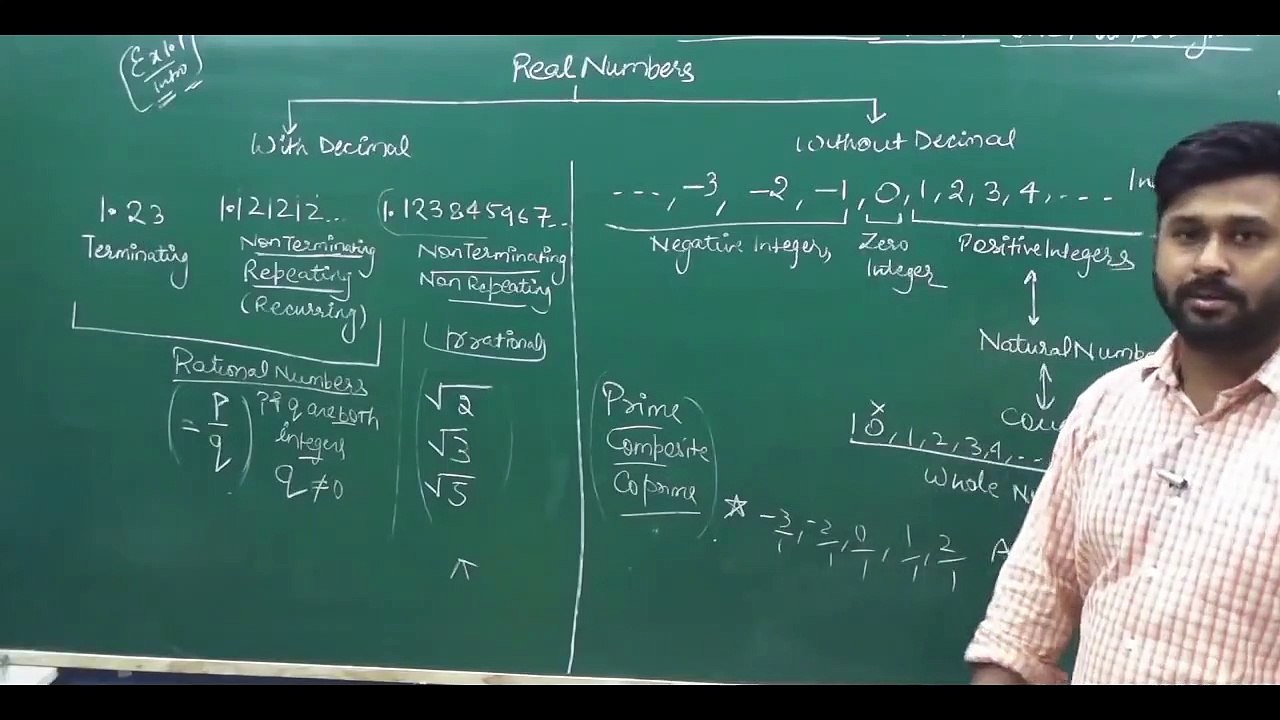 Ex 1.1
Intro
Real Numbers
With Decimal
Without Decimal
1.23
Terminating
1.121212...
Non Terminating
Repeating
(Recurring)
1.123845967...
Non Terminating
Non Repeating
Irrationals
Rational Numbers
= p/q
p & q are both
integers
q ≠ 0
√2
√3
√5
---, -3, -2, -1, 0, 1, 2, 3, 4, ....
Negative Integers
Zero
Integer
Positive Integers
Natural
0, 1, 2, 3, 4, ...
Whole
Prime
Composite
Coprime
-3/1, -2/1, 0/1, 1/1, 2/1